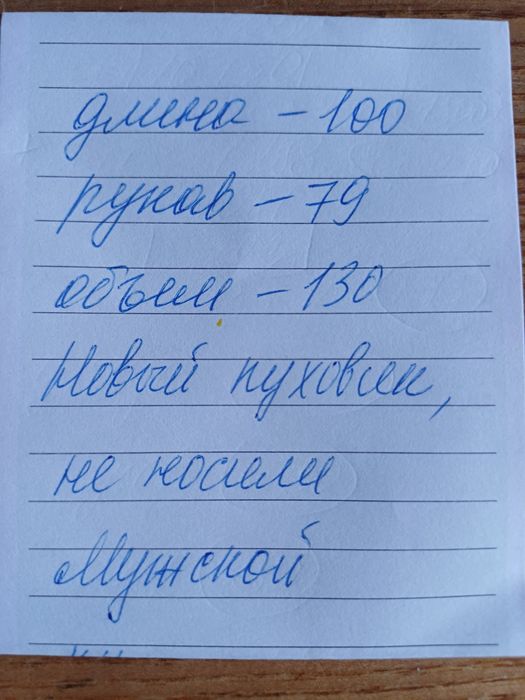 длина – 100
рукав – 79
объем – 130
Новый пуховик,
не носили
Мужской